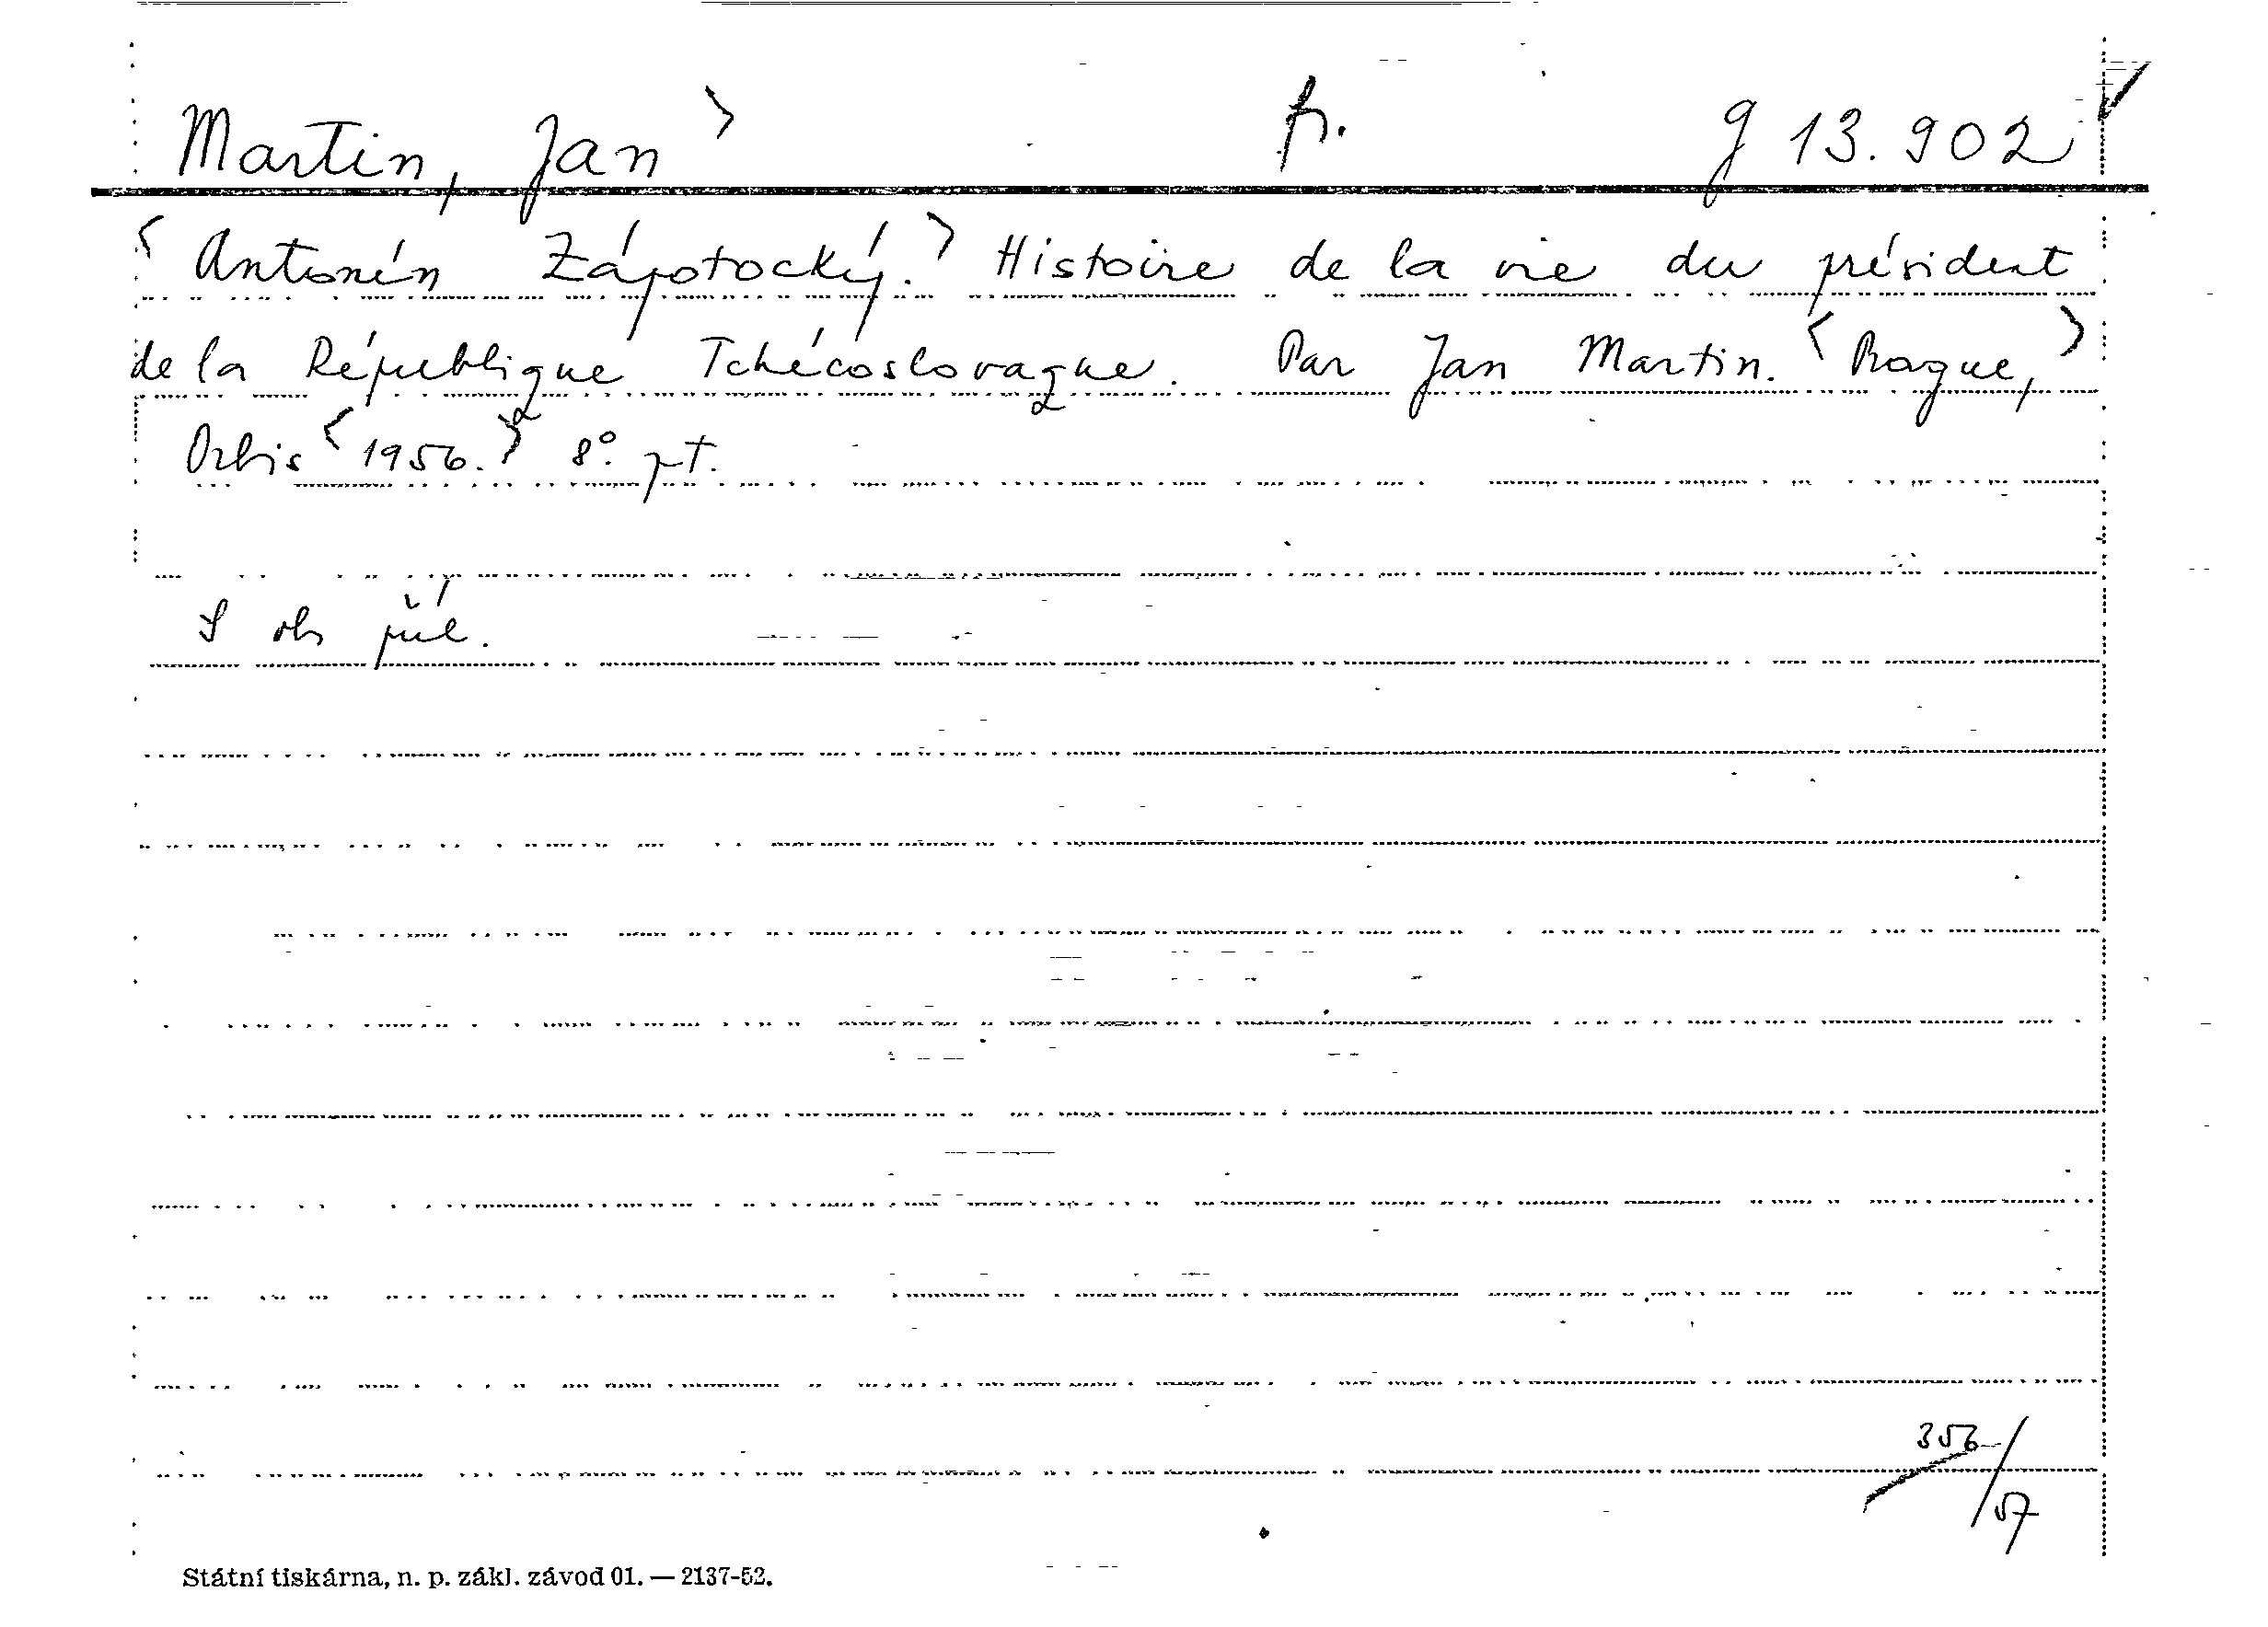 Martin, Jan > fr. g 13.902
< Antonín Zápotocký. > Histoire de la vie du président
de la République Tchécoslovaque. Par Jan Martin. < Prague, >
Orbis < 1956. > 8°. pt.
S ob příl.
356/57
Státní tiskárna, n. p. zákl. závod 01. — 2137-52.